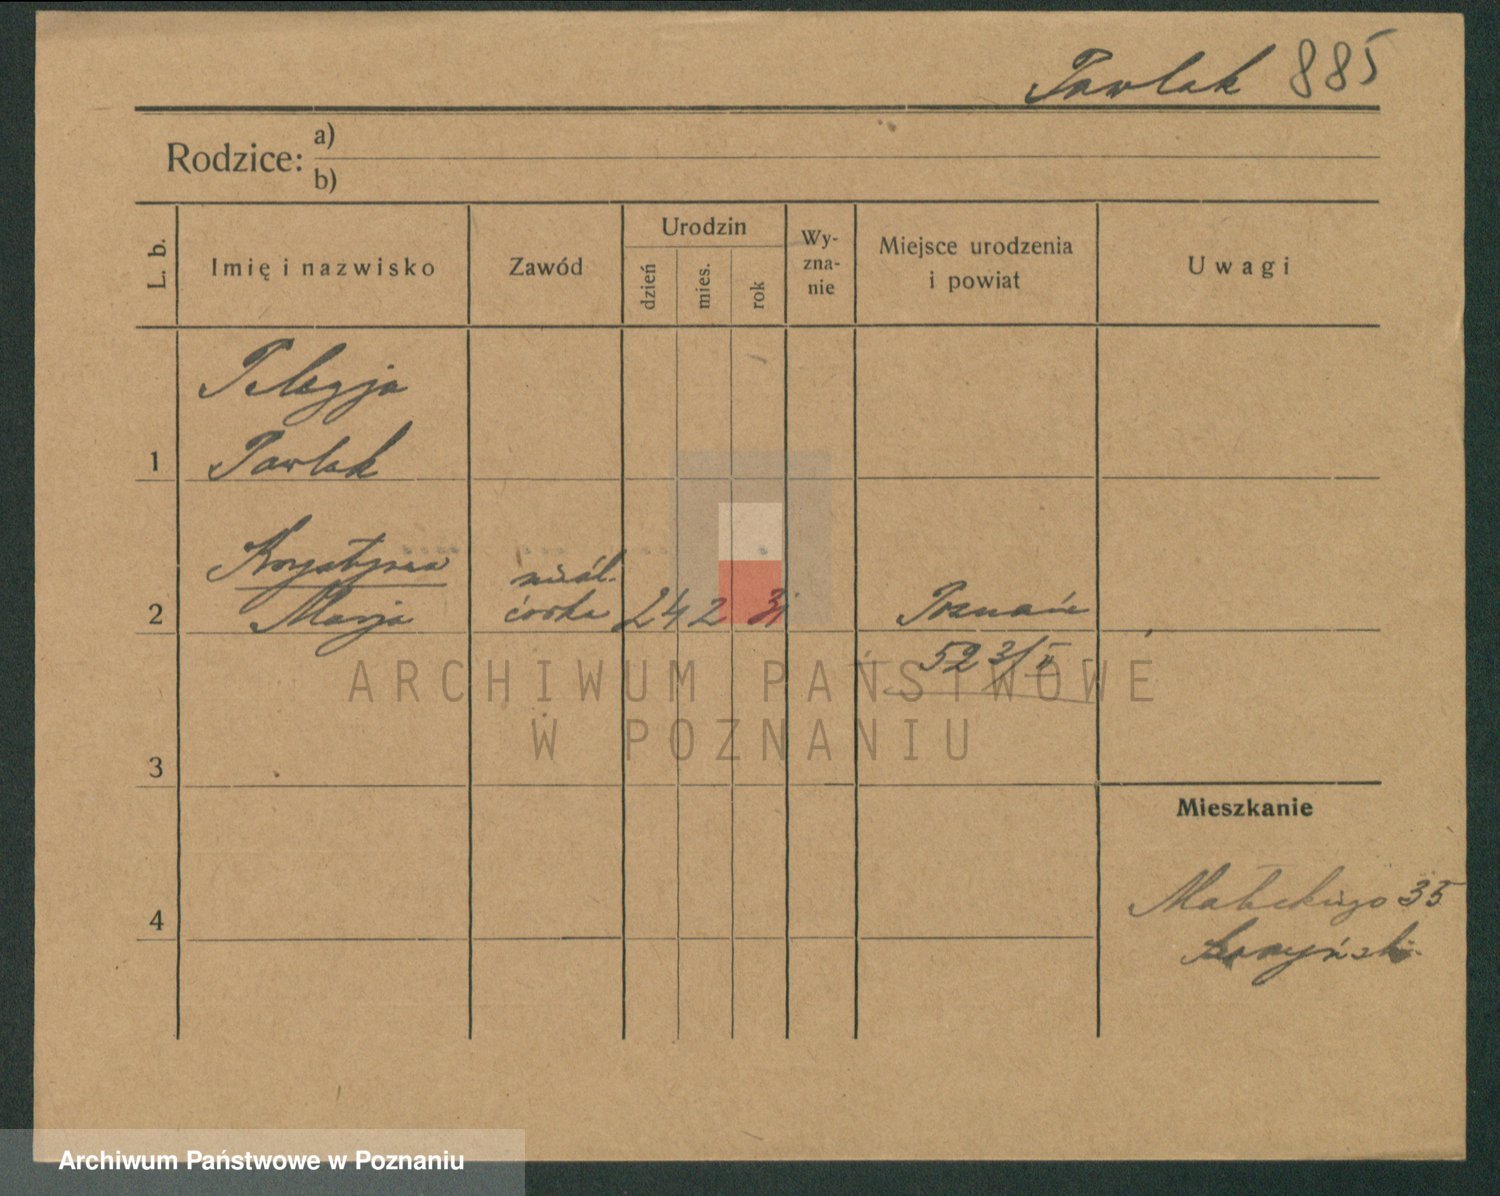 Pawlak 885
Rodzice: a)
b)
L. b.
Imię i nazwisko
Zawód
Urodzin
dzień
mies.
rok
Wy-
zna-
nie
Miejsce urodzenia
i powiat
Uwagi
Pelagja
1 Pawlak
Krystyna nieśl.
2 Marja córka 24 2 31 Poznań
52
ARCHIWUM PAŃSTWOWE
W POZNANIU
3
Mieszkanie
Małeckiego 35
4
Archiwum Państwowe w Poznaniu